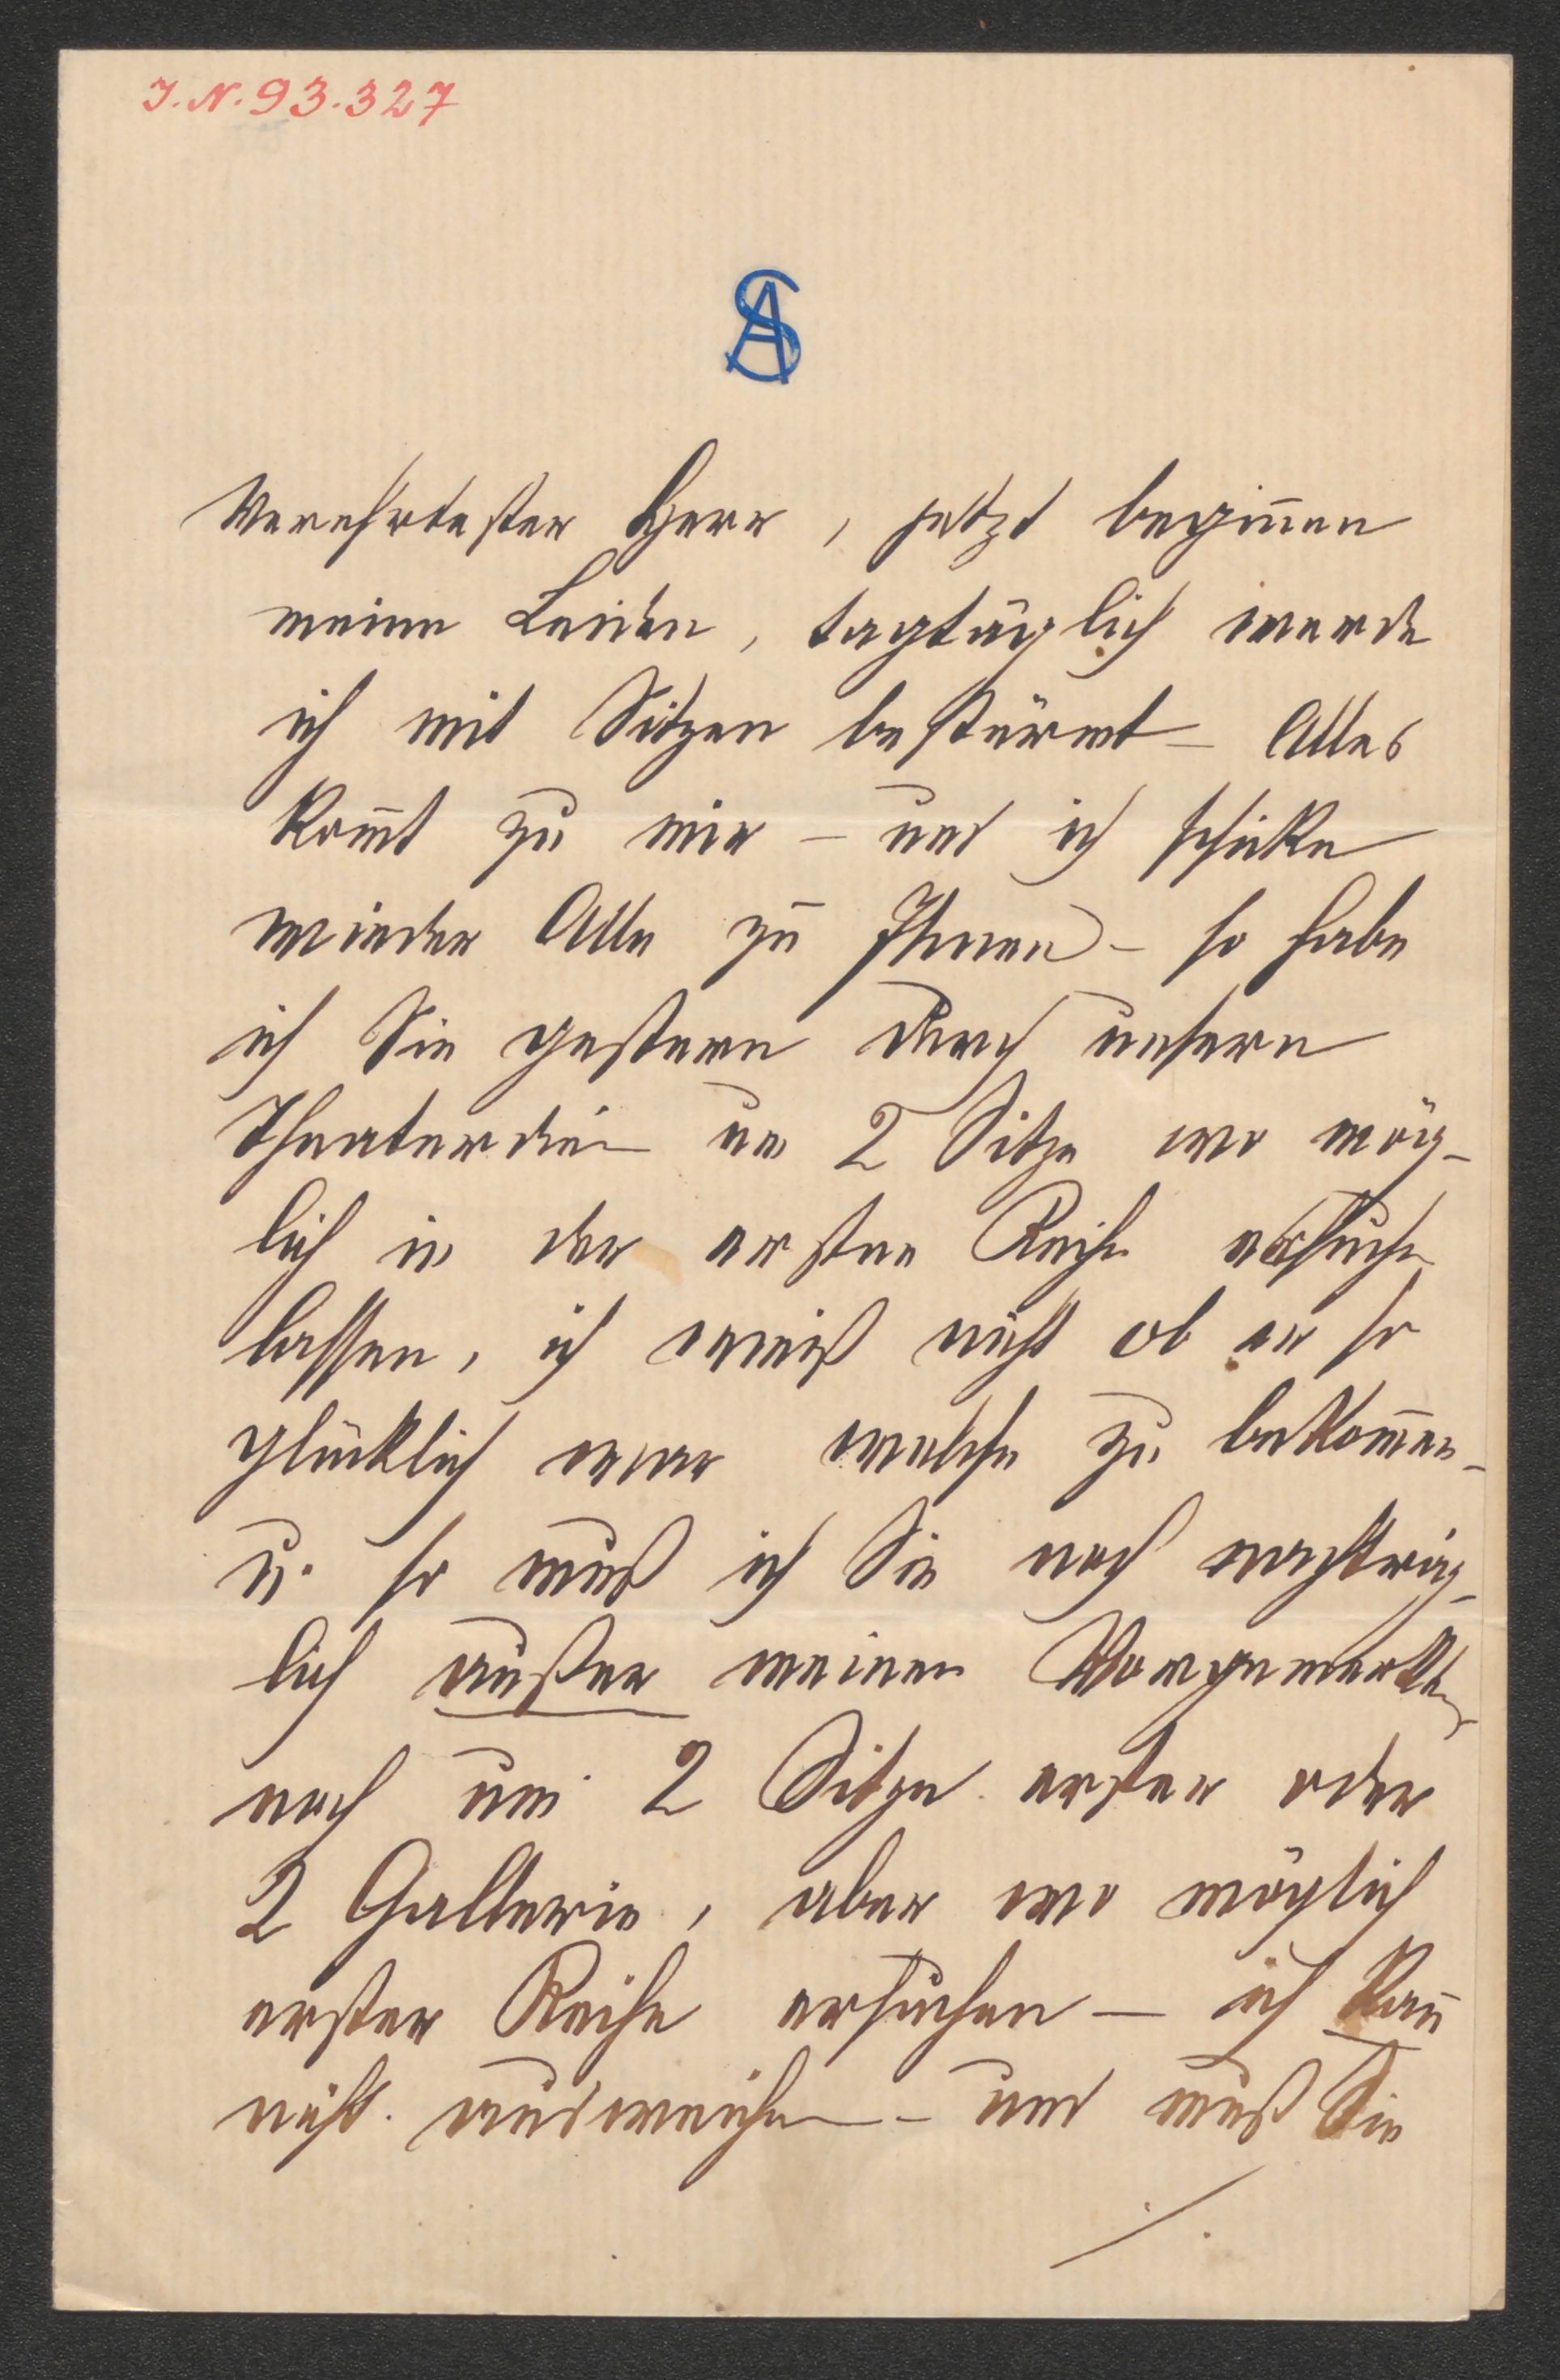 I.N. 93.327
AS
Verehrtester Herr, jetzt begin̅en
meine Leiden, tagtäglich werde
ich mit Sitzen bestürmt – Alles
kom̅t zu mir – und ich schicke
wieder Alle zu Ihnen – so habe
ich Sie gestern durch unsern
Theaterdien um 2 Sitze wo mög-
lich in der ersten Reihe ersuchen
lassen, ich weiß nicht ob er so
glücklich war welche zu bekom̅en –
u. so muß ich Sie noch nachträg-
lich außer meinen Vorgemerkten
noch um 2 Sitze erster oder
2 Gallerie, aber wo möglich
erster Reihe ersuchen – ich kan̅
nicht ausweichen – und muß Sie
./.